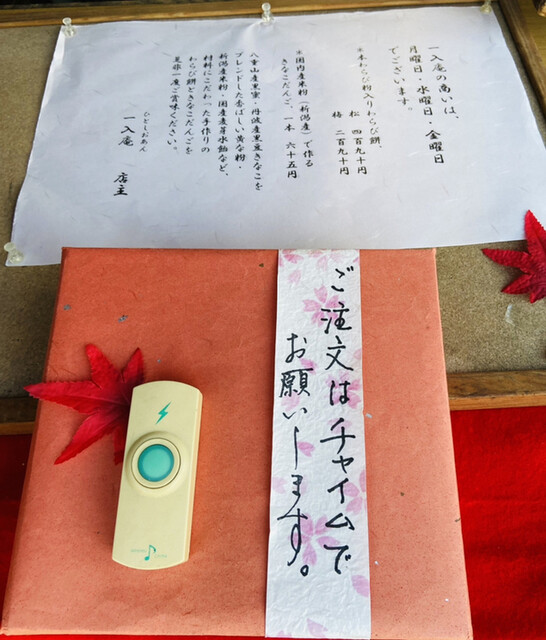 一入庵の商いは、
月曜日・水曜日・金曜日
でございます。
※本わらび粉入りわらび餅、
松 四百九十円
梅 二百九十円
※国内産米粉(新潟産)で作る
きなこだんご、一本 六十五円
八重山産黒蜜・丹波産黒豆きなこを
ブレンドした香ばしい黄な粉・
新潟産米粉・国産産芽水飴など、
材料にこだわった手作りの
わらび餅ときなこだんごを
是非一度ご賞味ください。
ひとしおあん
一入庵 店主
ご注文はチャイムで
お願いします。